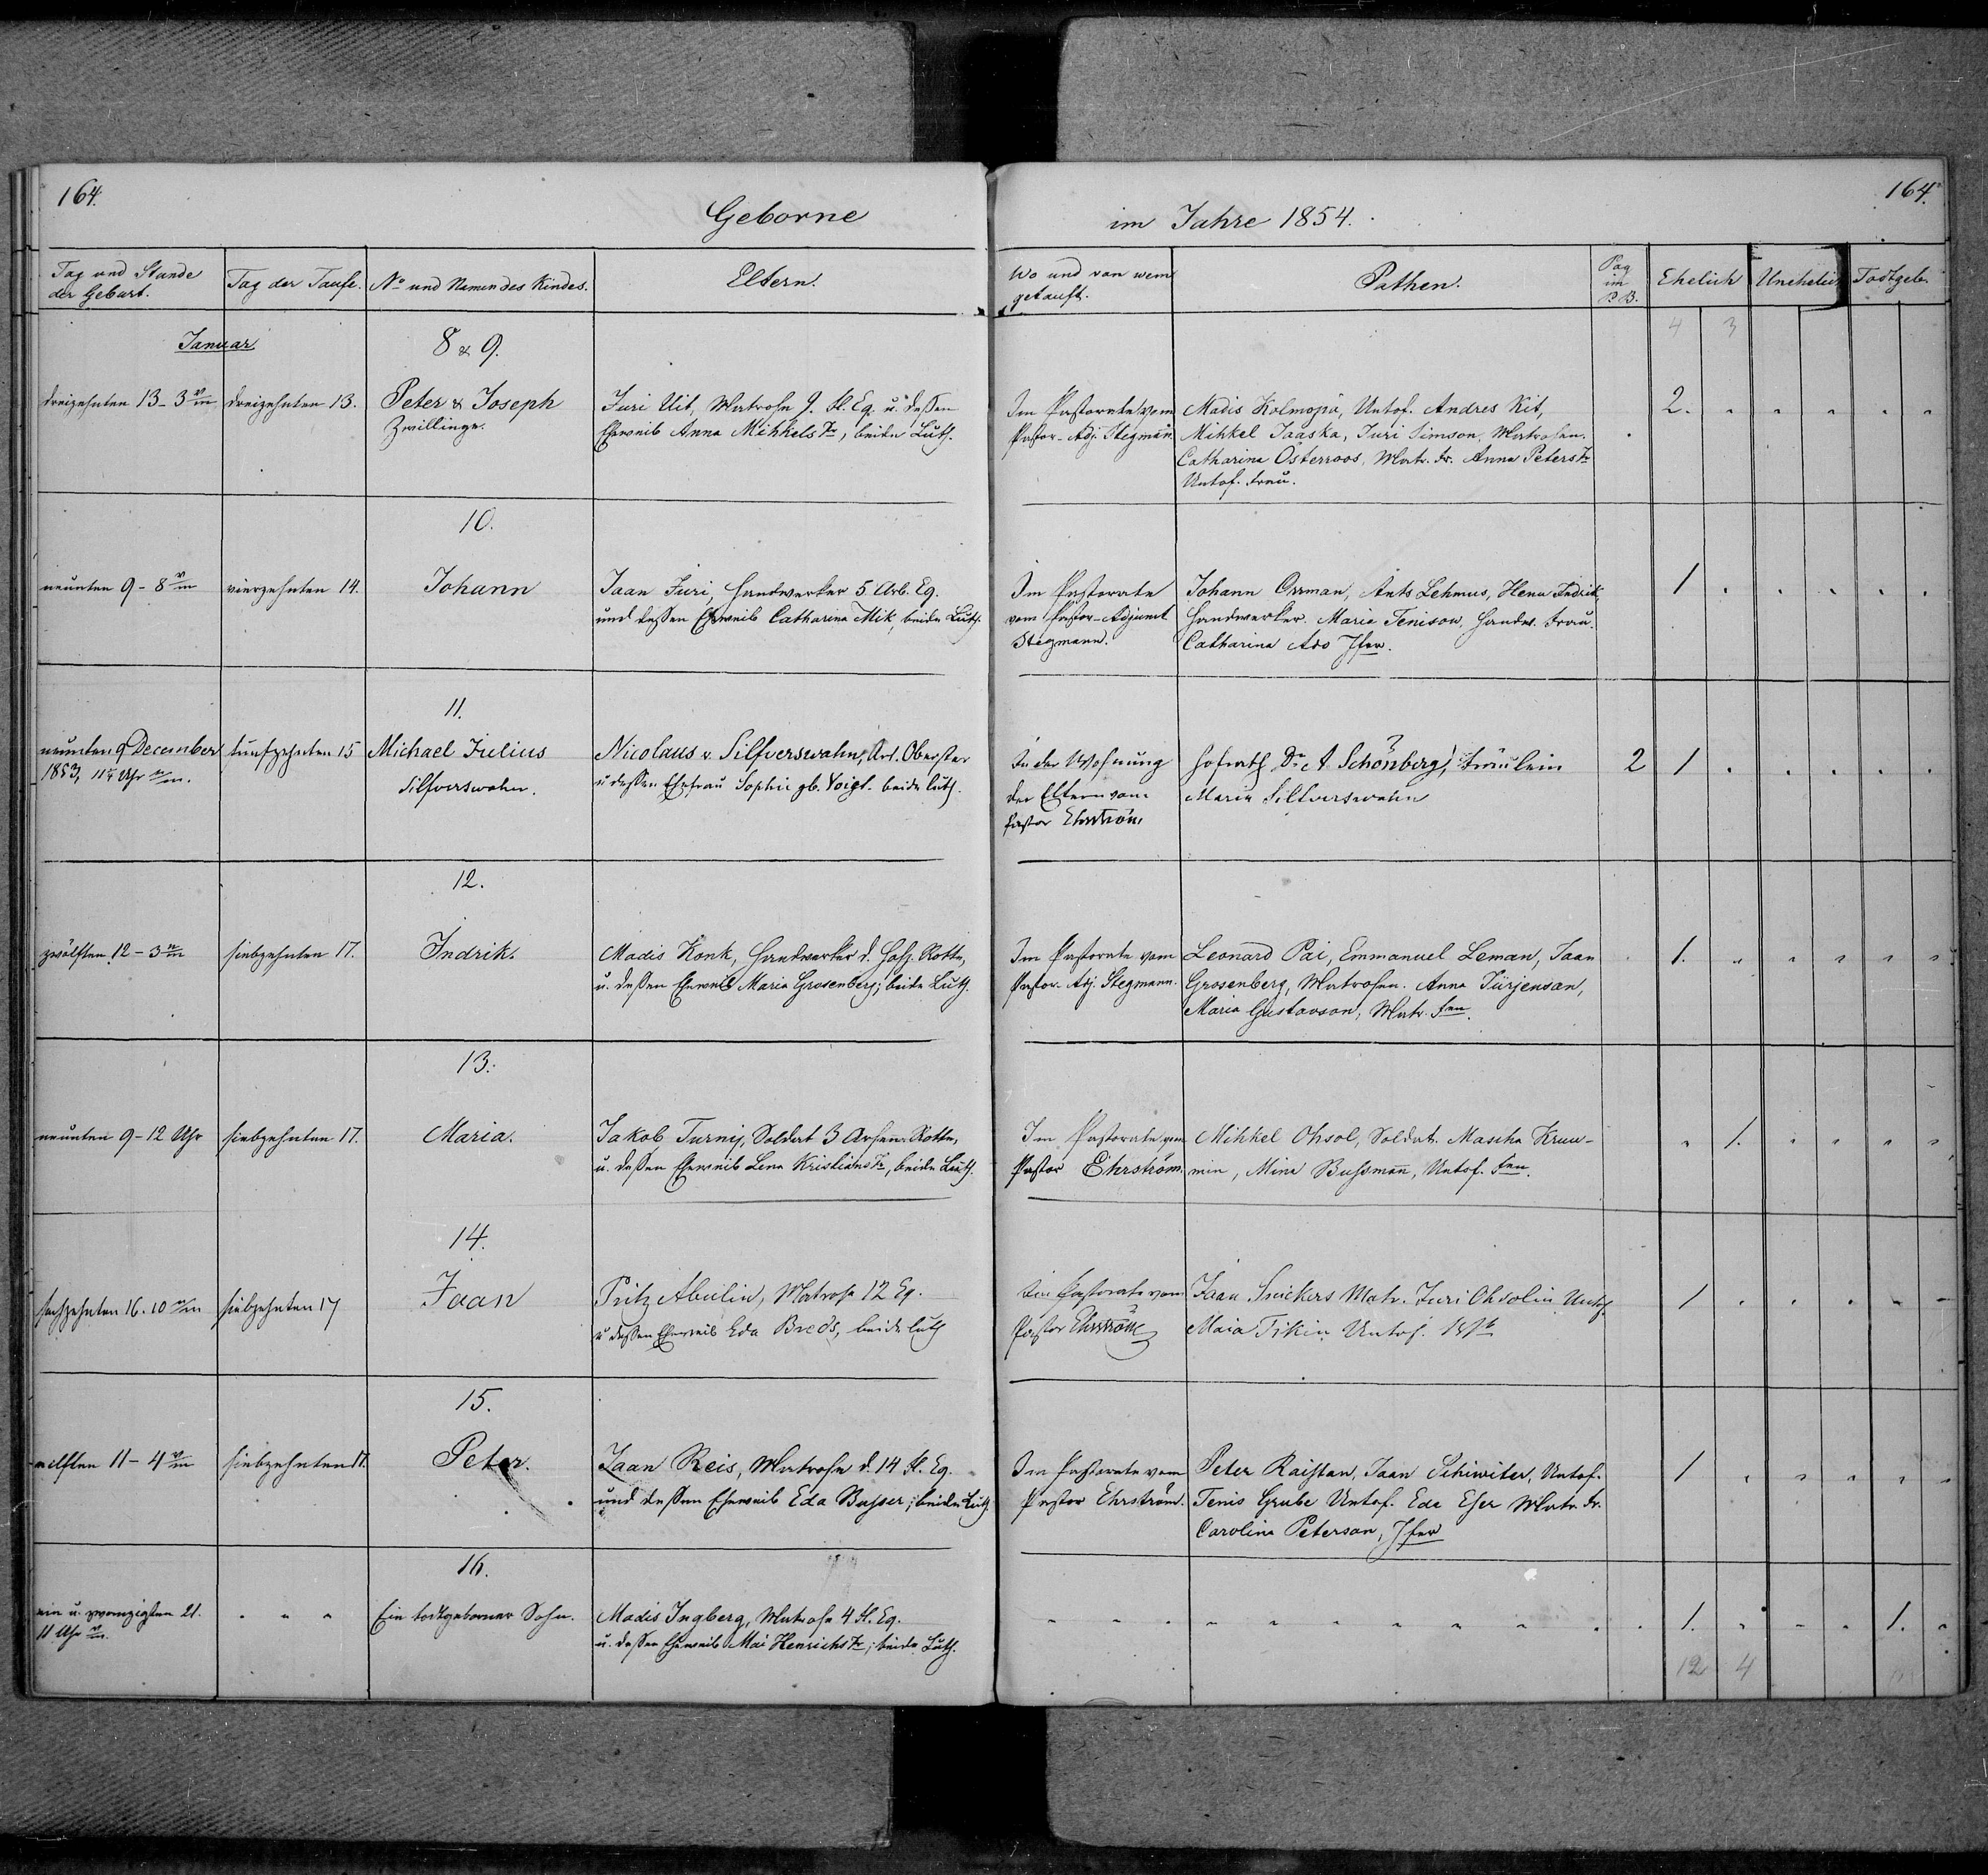 164.
Geborne
im Jahre 1854.
164.
Tag und Stunde
der Geburt.
Tag der Taufe.
No und Namen des Kindes.
Eltern.
Wo und von wem
getauft.
Pathen.
Pag
im
P. B.
Ehelich
Unehelich
Todtgeb.
4 3
Januar
8 & 9.
dreizehnten 13 - 3 v/m
dreizehnten 13.
Peter & Joseph
Zwillinge.
Juri Uit, Matrose 9. Fl. Eq. u. dessen
Eheweib Anna Mihkels Tr, beide Luth.
Im Pastorate vom
Pastor-Adj. Stegmann.
Madis Kolmopä, Untof. Andres Kit,
Mihkel Jaaska, Juri Simson, Matrosen.
Catharina Österroos, Matr. Fr. Anna Peters Tr
Untof. Frau.
2.
10.
neunten 9 - 8 v/m
vierzehnten 14.
Johann
Jaan Juri, Handwerker 5 Arb. Eq.
und dessen Eheweib Catharina Mik, beide Luth.
Im Pastorate
vom Pastor-Adjunct
Stegmann.
Johann Orrman, Ants Lehmus, Henn Indrik,
Handwerker. Marie Tenison, Handw. Frau.
Catharina Ado Jfer.
1
11.
neunten 9 December
1853, 11 3/4 Uhr n/m.
fünfzehnten 15
Michael Julius
Silfverswahn.
Nicolaus v. Silfverswahn, Art. Oberster
u dessen Ehefrau Sophie gb. Voigt. beide luth.
In der Wohnung
der Eltern vom
Pastor Ehrström
Hofrath Dr A Schönberg, Fräulein
Maria Silfverswahn
2 1
12.
zwölften 12 - 3 n/m
siebzehnten 17.
Indrik.
Madis Konk, Handwerker d. Hosp. Rotte,
u. dessen Eheweib Maria Grosenberg; beide Luth.
Im Pastorate vom
Pastor-Adj. Stegmann.
Leonard Pai, Emmanuel Leman, Jaan
Grosenberg, Matrosen. Anna Jürjenson,
Maria Gustavson, Matr. Fen.
1.
13.
neunten 9 - 12 Uhr
siebzehnten 17.
Maria.
Jakob Turnij, Soldat 3 Arsen. Rotte,
u. dessen Eheweib Lena Kristians Tr, beide Luth.
Im Pastorate vom
Pastor Ehrström.
Mihkel Ohsol, Soldat. Mascha Kruu-
min, Mina Bussmann, Untof. Fen.
1.
14.
sechzehnten 16. 10 v/m
siebzehnten 17
Jaan
Pritz Abulin, Matrose 12 Eq.
u dessen Eheweib Eda Breds, beide luth
Im Pastorate vom
Pastor Ehrström
Jaan Snickers Matr. Juri Ohsolin Untof.
Maia Tikin Untof.
1
15.
eilften 11 - 4 v/m
siebzehnten 17.
Peter.
Jaan Reis, Matrose d. 14 Fl. Eq.
und dessen Eheweib Eda Busser; beide Luth.
Im Pastorate vom
Pastor Ehrström.
Peter Raistan, Jaan Pihiwiter, Untof.
Tenis Grube Untof. Eda Eser Matr. Fr.
Carolina Peterson, Jfer
1
16.
ein u. zwanzigsten 21.
11 Uhr
Ein todtgeborner Sohn.
Madis Ingberg, Matrose 4 Fl. Eq.
u. dessen Eheweib Mai Henrichs Tr; beide Luth.
1. 1.
12 4